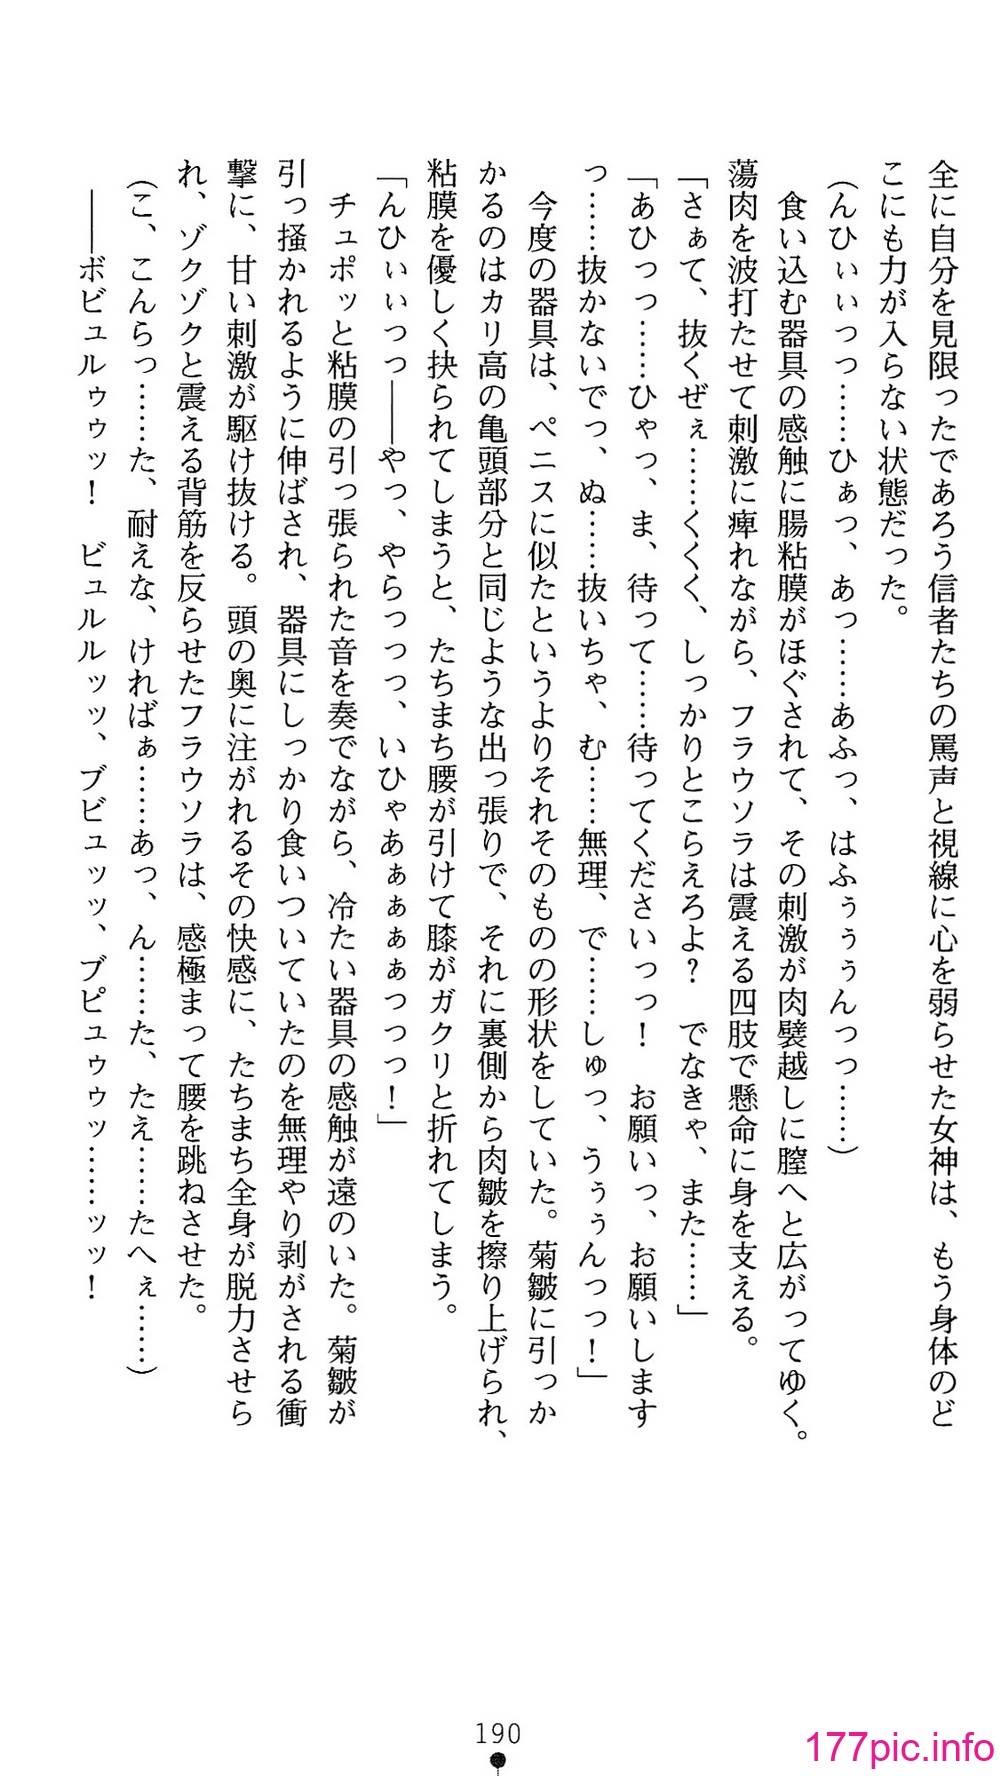 全に自分を見限ったであろう信者たちの罵声と視線に心を弱らせた女神は、もう身体のど
こにも力が入らない状態だった。
(んひぃぃっっ……ひぁっ、あっ……あふっ、はふぅぅぅんっっ……)
食い込む器具の感触に腸粘膜がほぐされて、その刺激が肉襞越しに膣へと広がってゆく。
蕩肉を波打たせて刺激に痺れながら、フラウソラは震える四肢で懸命に身を支える。
「さぁて、抜くぜぇ……くくく、しっかりとこらえろよ? でなきゃ、また……」
「あひっっ……ひゃっ、ま、待って……待ってくださいっっ! お願いっ、お願いします
っ……抜かないでっ、ぬ……抜いちゃ、む……無理、で……しゅっ、うぅぅんっっ!」
今度の器具は、ペニスに似たというよりそれそのものの形状をしていた。菊皺に引っか
かるのはカリ高の亀頭部分と同じような出っ張りで、それに裏側から肉皺を擦り上げられ、
粘膜を優しく抉られてしまうと、たちまち腰が引けて膝がガクリと折れてしまう。
「んひぃぃっっ――やっ、やらっっっ、いひゃあぁぁぁぁっっっ!」
チュポッと粘膜の引っ張られた音を奏でながら、冷たい器具の感触が遠のいた。菊皺が
引っ掻かれるように伸ばされ、器具にしっかり食いついていたのを無理やり剥がされる衝
撃に、甘い刺激が駆け抜ける。頭の奥に注がれるその快感に、たちまち全身が脱力させら
れ、ゾクゾクと震える背筋を反らせたフラウソラは、感極まって腰を跳ねさせた。
(こ、こんらっ……た、耐えな、ければぁ……あっ、ん……た、たえ……たへぇ……)
――ボビュルゥゥッ! ビュルルッッ、ブビュッッ、ブピュゥゥッ……ッッ!
190
177pic.info